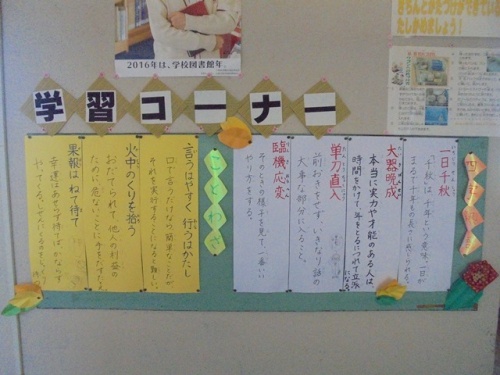 2016年は、学校図書館年。
たしかめましょう!
学習コーナー
四字熟語
一日千秋
「千秋」は、千年という意味。一日が
まるで千年もの長さに感じられる。
大器晩成
本当に実力や才能のある人は、
時間をかけて、年をとるにつれて立派
になる。
単刀直入
前おきをせず、いきなり話の
大事な部分に入ること。
臨機応変
そのときの様子を見て、一番いい
やり方をする。
ことわざ
言うはやすく 行うはかたし
口で言うだけなら簡単なことが
それを実行することになると難しい。
火中のくりを拾う
おだてられて、他人の利益の
ために、危ないことに手をだすこと。
果報は ねて待て
幸運はあせらず待てばかならず
やってくる